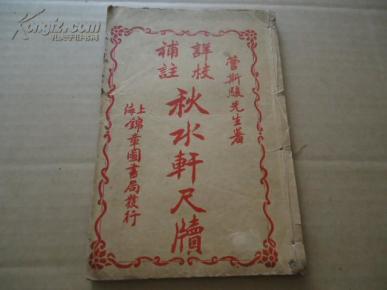 Kongfz.com
孔夫子旧书网
管斯駿先生著
詳校
補註
秋水軒尺牘
上海
錦章圖書局發行